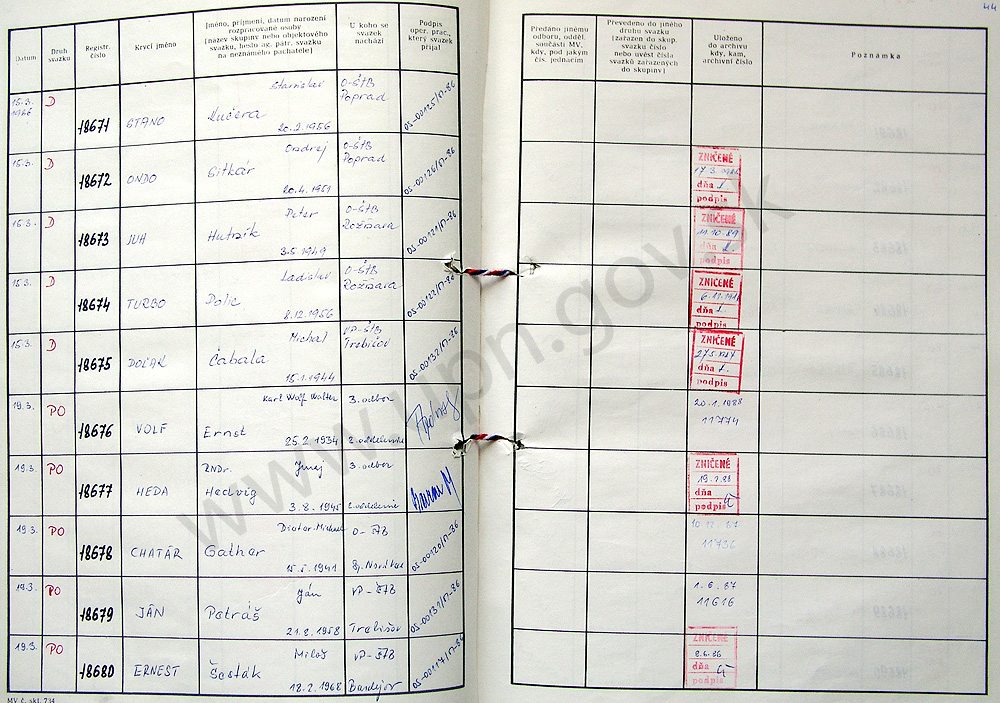 44
Datum
Druh svazku
Registr. číslo
Krycí jméno
Jméno, příjmení, datum narození
rozpracované osoby
(název skupiny nebo objektového
svazku, heslo ag. pátr. svazku
na neznámého pachatele)
U koho se
svazek
nachází
Podpis
oper. prac.,
který svazek
přijal
Předáno jinému
odboru, odděl.
součásti MV,
kdy, pod jakým
čís. jednacím
Převedeno do jiného
druhu svazku
(zařazen do skup.
svazku číslo
nebo uvést číslo
svazků zařazených
do skupiny)
Uloženo
do archivu
kdy, kam,
archivní číslo
Poznámka
15.3. 1986 D 18671 STANO Stanislav Kučera 20.2.1956 O-ŠTB Poprad OS-00125/17-86
15.3. D 18672 ONDO Ondrej Sitkár 20.4.1951 O-ŠTB Poprad OS-00126/17-86
ZNIČENÉ
dňa
podpis
15.3. D 18673 JUH Peter 3.5.1949 O-ŠTB OS-00121/17-86
ZNIČENÉ
11.10.89
dňa
podpis
15.3. D 18674 TURBO Ladislav 8.12.1956 O-ŠTB OS-00122/17-86
ZNIČENÉ
dňa
podpis
15.3. D 18675 Michal Čabala 15.1.1944 VP-ŠTB Trebišov OS-00132/17-86
ZNIČENÉ
dňa
podpis
19.3. PO 18676 VOLF Karl Wolf Walter Ernst 25.2.1934 3. odbor 2. oddelenie
20.1.1988
11774
19.3. PO 18677 HEDA Hedvig 3.8.1945 3. odbor 2. oddelenie
ZNIČENÉ
19.1.88
dňa
podpis
19.3. PO 18678 CHATÁR Dieter-Michael Gather 15.5.1941 O-ŠTB OS-00120/17-86
10.12.87
11736
19.3. PO 18679 JÁN Ján Petráš 21.8.1958 VP-ŠTB Trebišov OS-00131/17-86
1.6.87
11616
19.3. PO 18680 ERNEST Miloš Šesták 18.2.1968 VP-ŠTB Bardejov OS-00117/17-86
ZNIČENÉ
2.6.86
dňa
podpis
MV č. skl. 734
www.upn.gov.sk